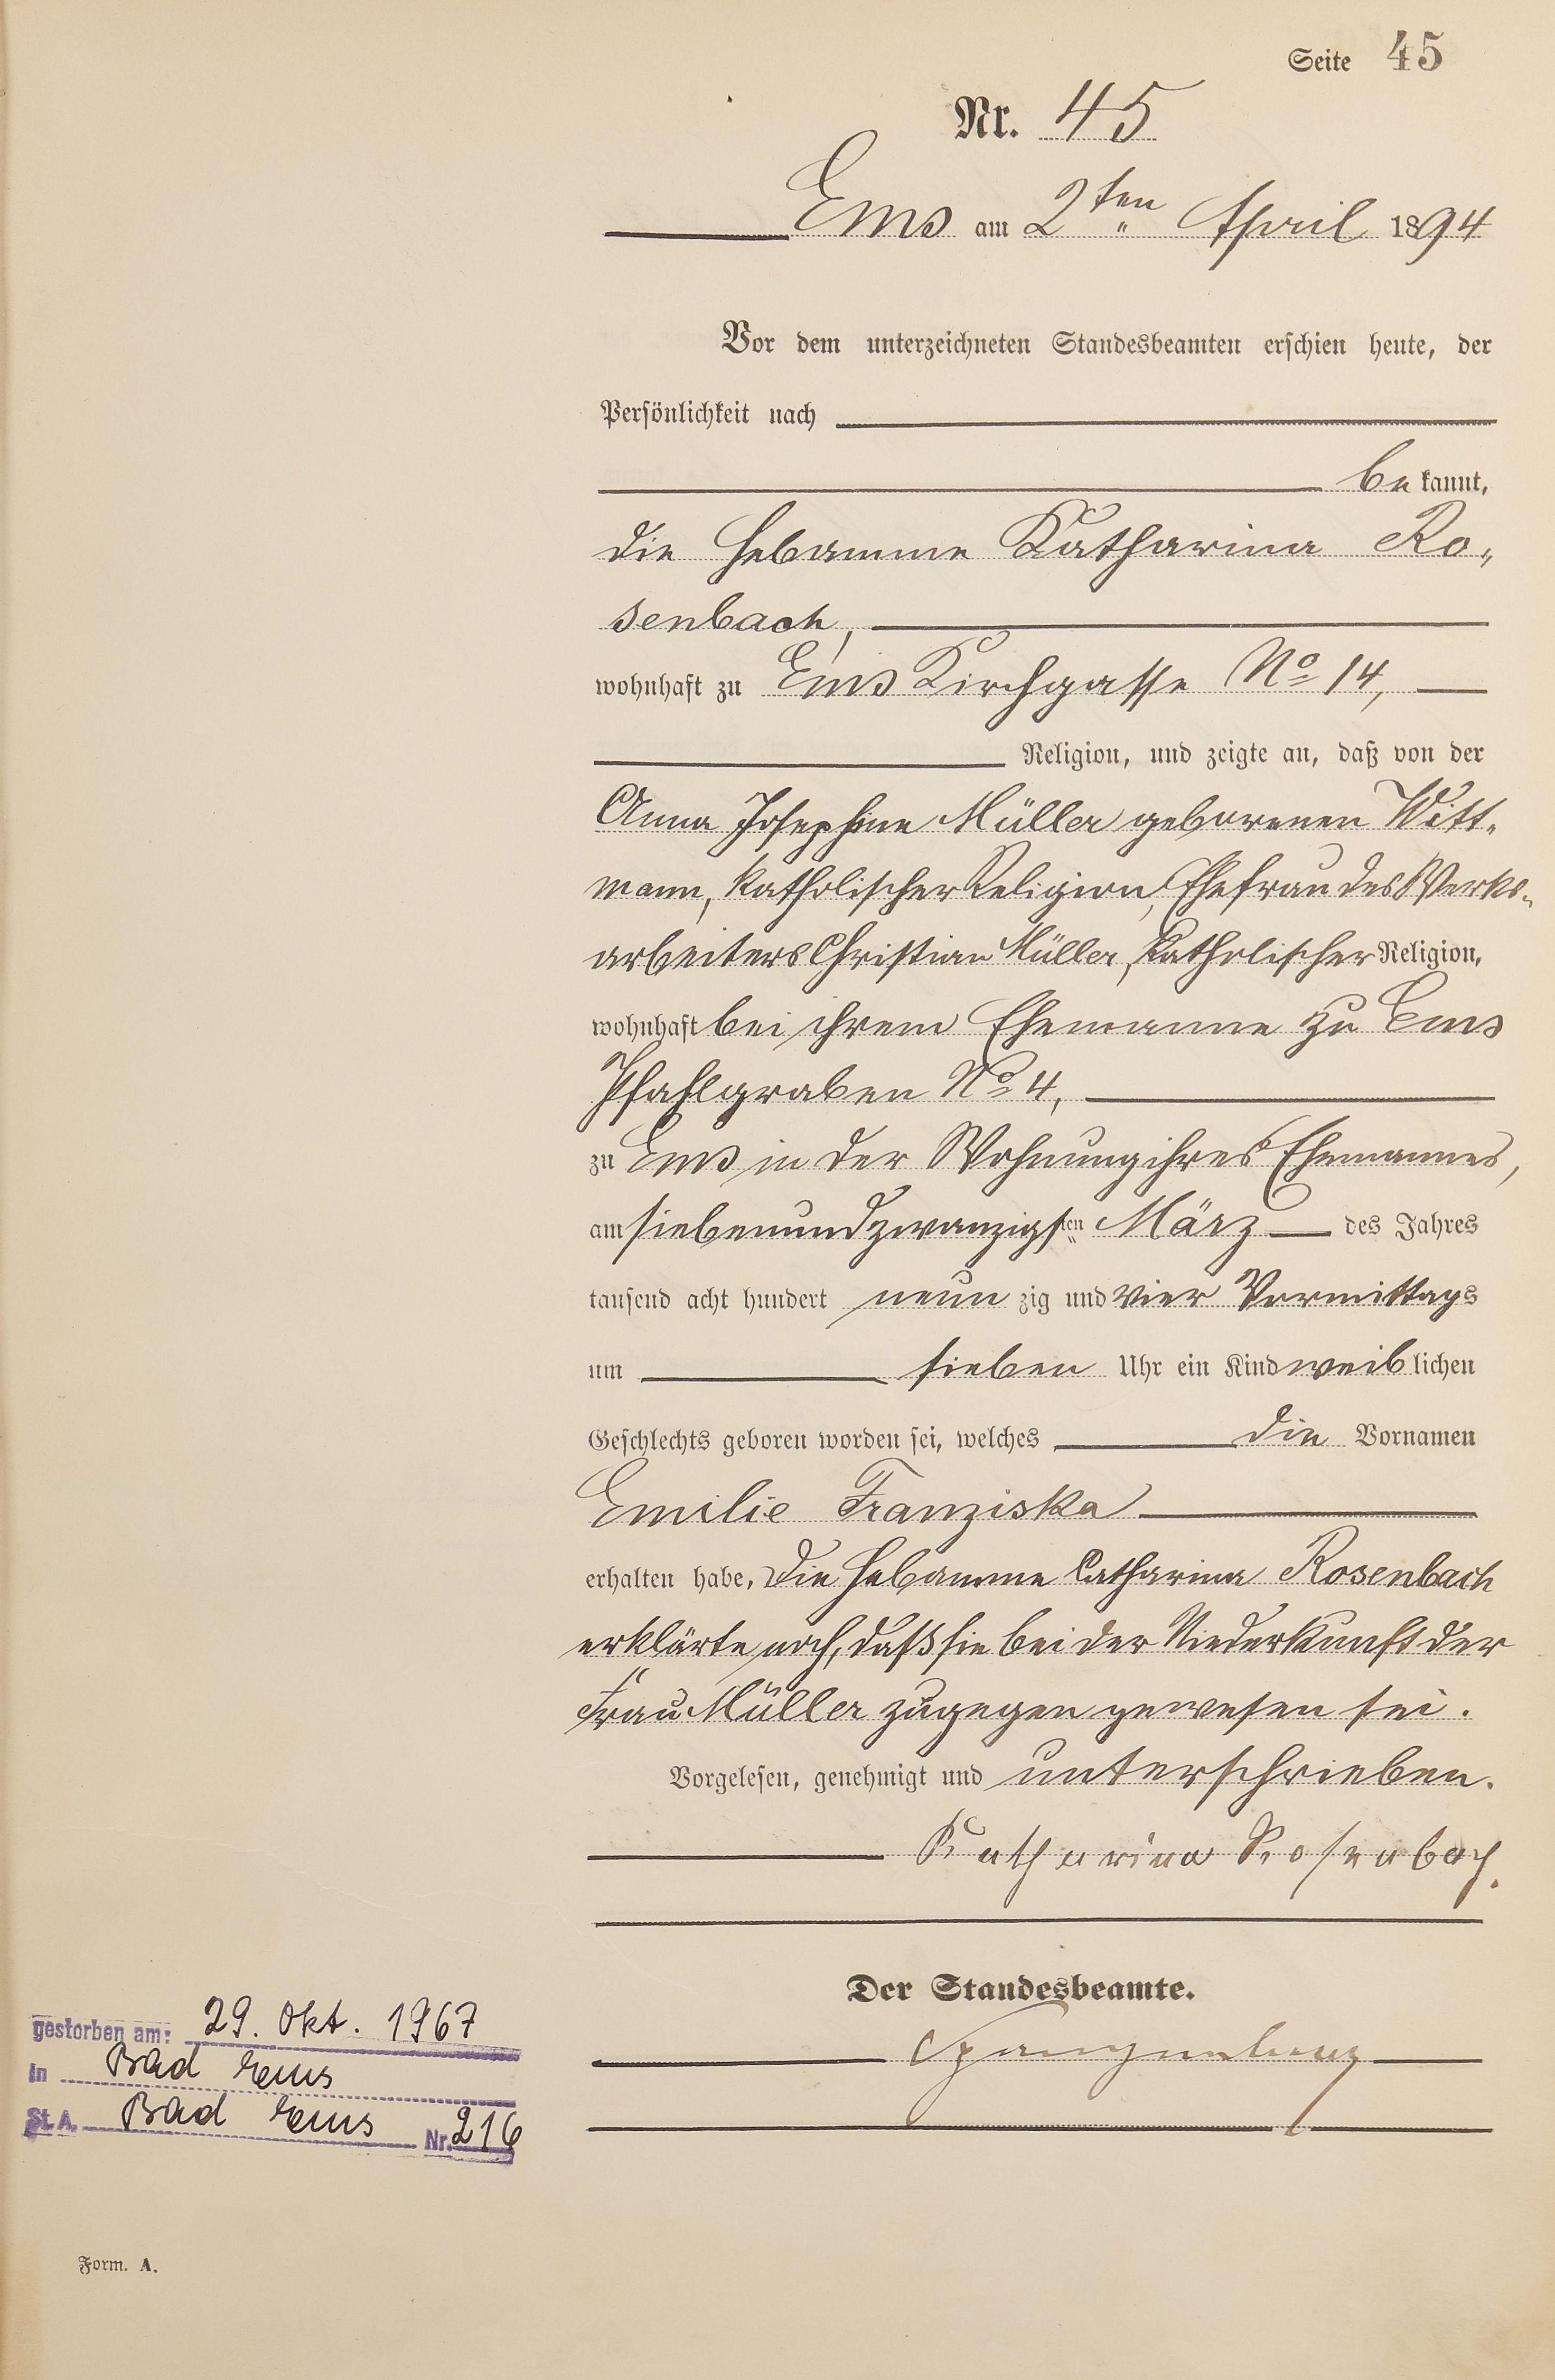 Seite 45
Nr. 45
Ems am 2ten April 1894
Vor dem unterzeichneten Standesbeamten erschien heute, der
Persönlichkeit nach
be kannt,
die Hebamme Katharina Ro-
senbach,
wohnhaft zu Ems Kirchgasse No 14,
Religion, und zeigte an, daß von der
Anna Josephine Müller geborenen Witt-
mann, katholischer Religion, Ehefrau des Werks-
arbeiters Christian Müller, katholischer Religion,
wohnhaft bei ihrem Ehemanne zu Ems
Pfahlgraben No 4,
zu Ems in der Wohnung ihres Ehemannes,
am siebenundzwanzigsten März des Jahres
tausend acht hundert neun zig und vier Vormittags
um sieben Uhr ein Kind weib lichen
Geschlechts geboren worden sei, welches die Vornamen
Emilie Franziska
erhalten habe. Die Hebamme Catharina Rosenbach
erklärte noch, daß sie bei der Niederkunft der
Frau Müller zugegen gewesen sei.
Vorgelesen, genehmigt und unterschrieben.
Katharina Rosenbach.
Der Standesbeamte.
Spangenberg
gestorben am: 29. Okt. 1967
in Bad Ems
St. A. Bad Ems Nr. 216
Form. A.